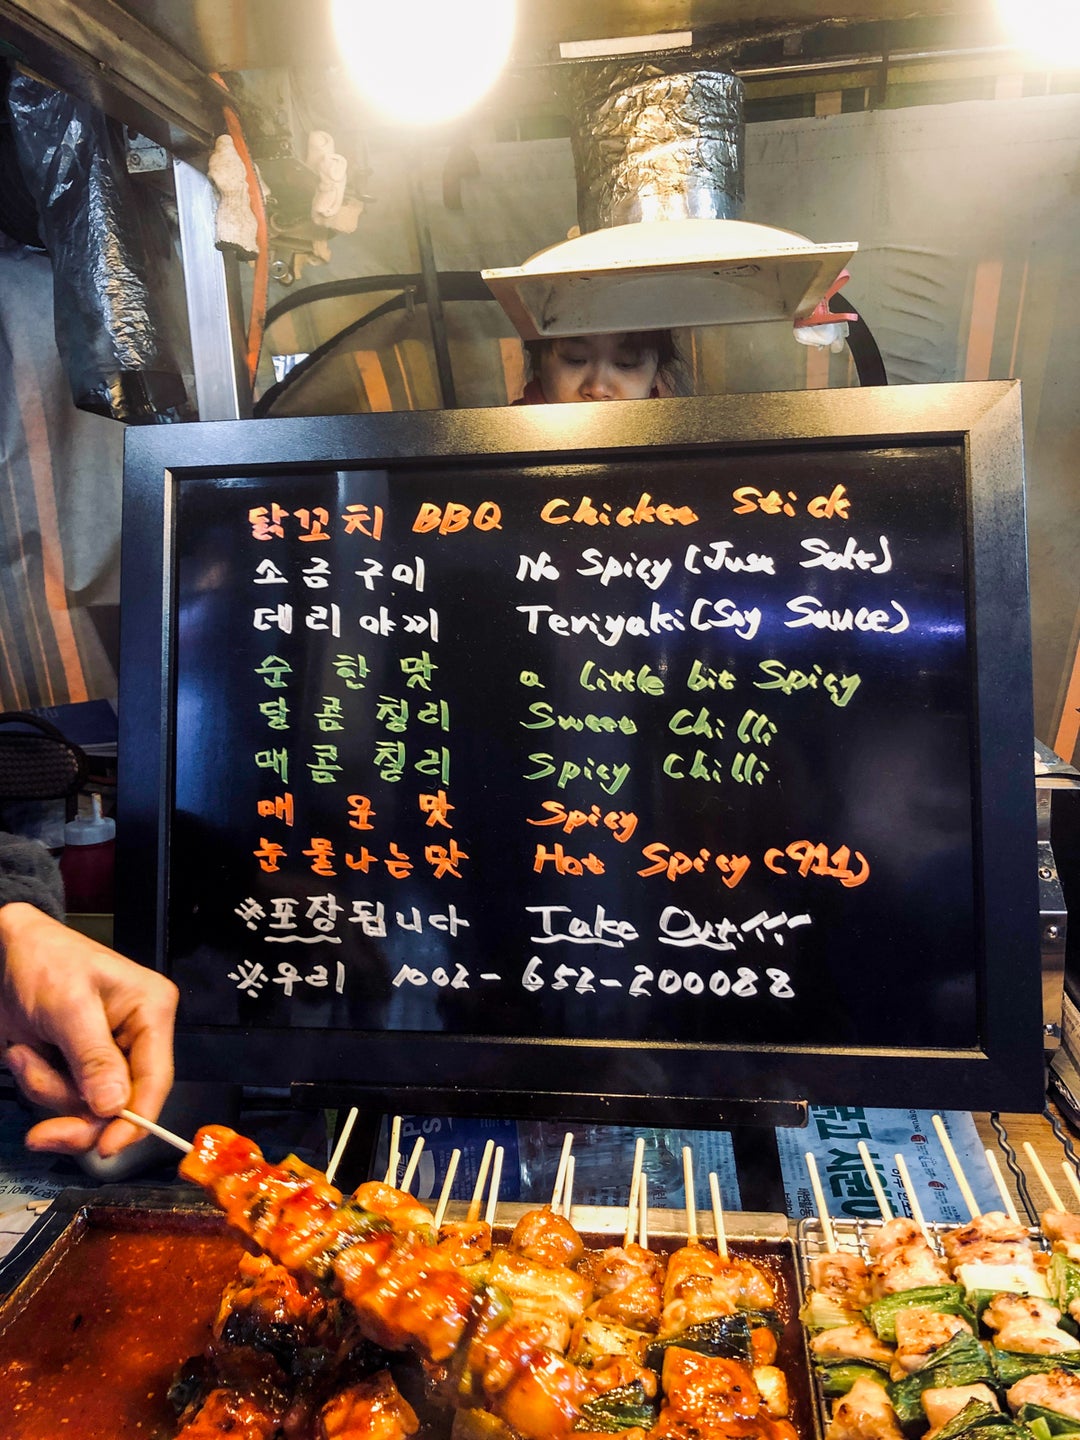 닭꼬치 BBQ Chicken Stick
소금구이 No Spicy (Just Salt)
데리야끼 Teriyaki (Soy Sauce)
순한맛 a little bit Spicy
달콤칠리 Sweet Chilli
매콤칠리 Spicy Chilli
매운맛 Spicy
눈물나는맛 Hot Spicy (911)
※포장됩니다 Take Out!!!
※우리 1002-652-200088